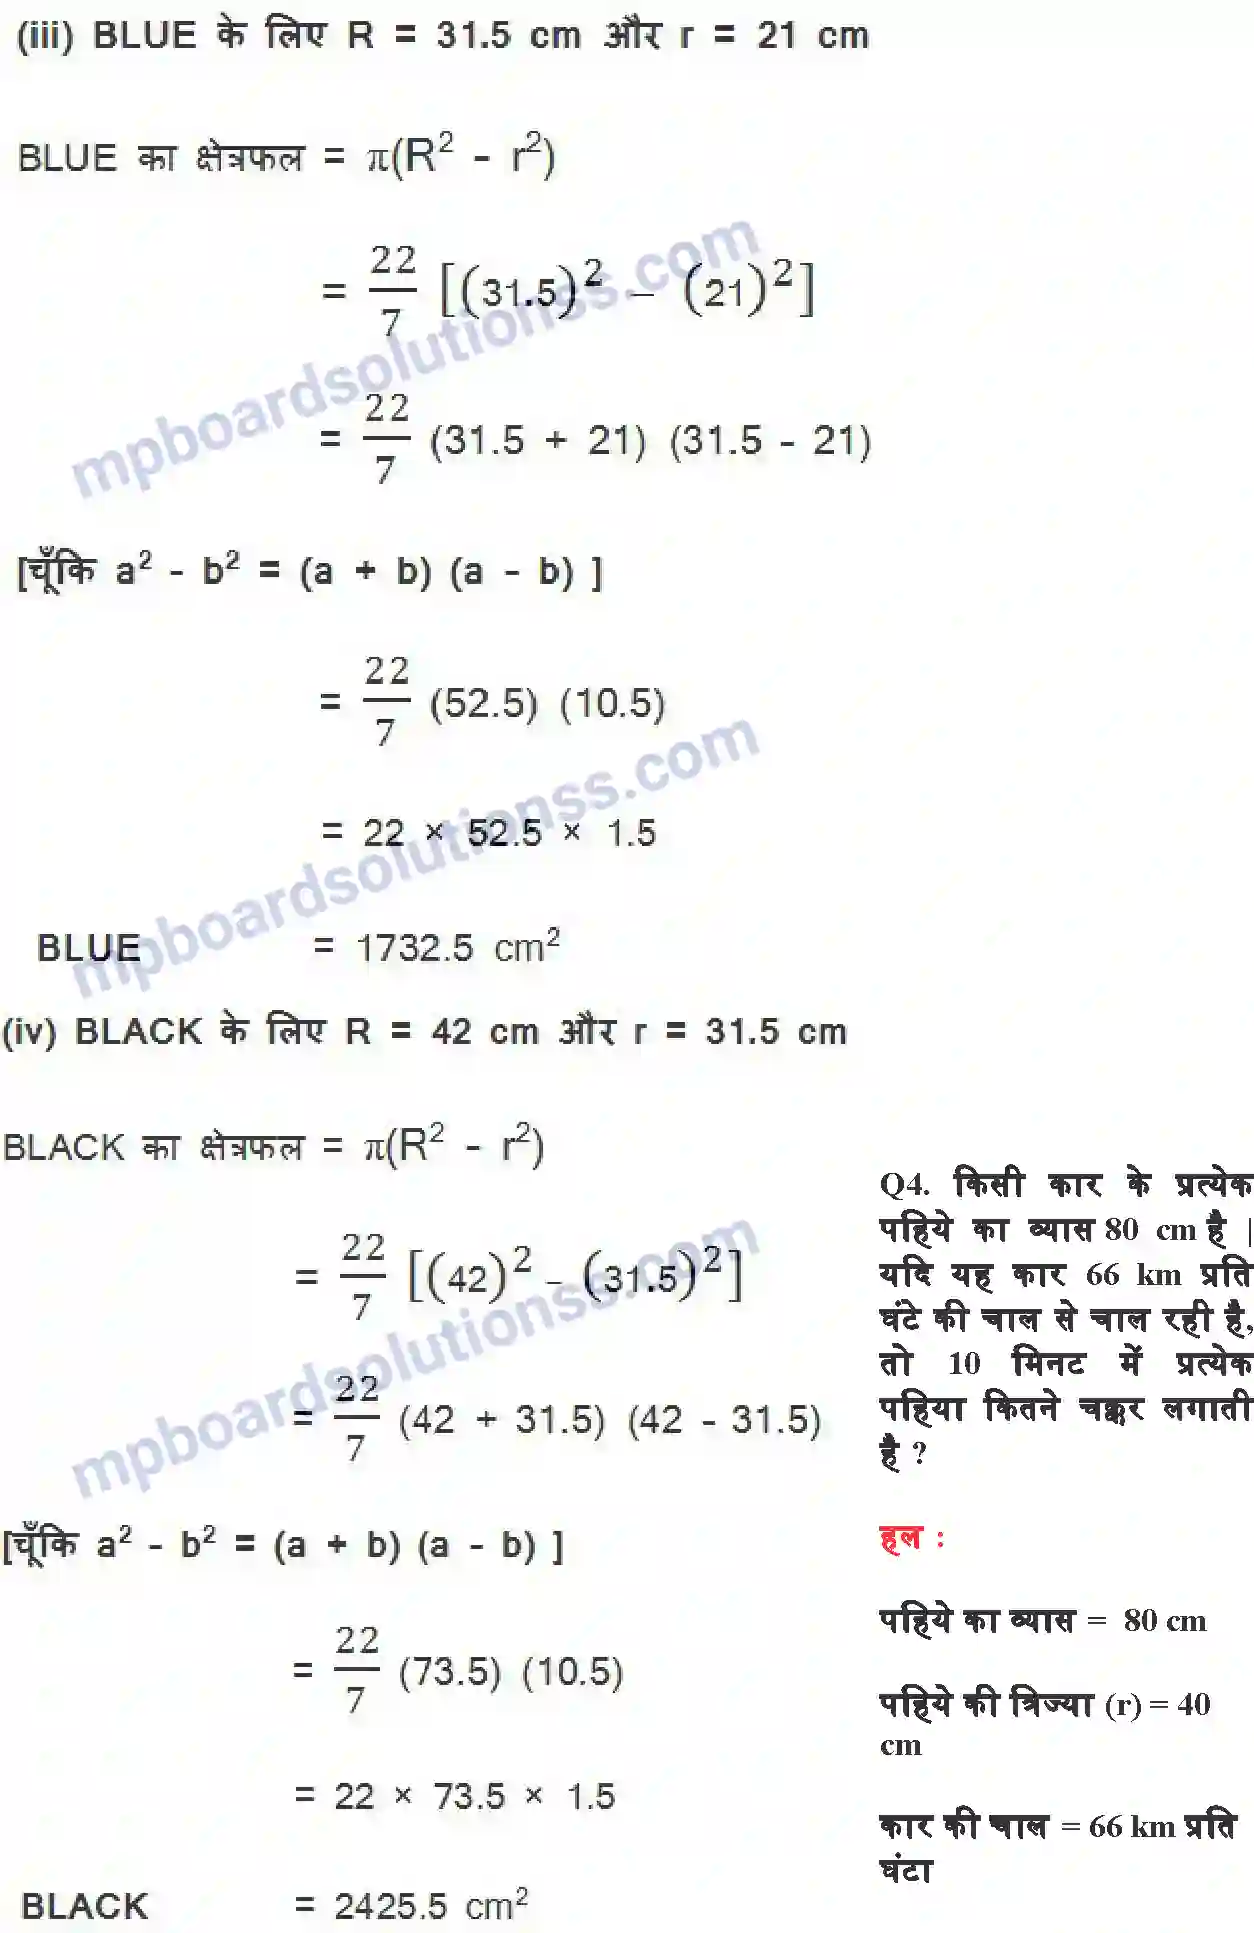 (iii) BLUE के लिए R = 31.5 cm और r = 21 cm
BLUE का क्षेत्रफल = π(R² - r²)
= 22/7 [(31.5)² – (21)²]
= 22/7 (31.5 + 21) (31.5 - 21)
[चूँकि a² - b² = (a + b) (a - b) ]
= 22/7 (52.5) (10.5)
= 22 × 52.5 × 1.5
BLUE = 1732.5 cm²
(iv) BLACK के लिए R = 42 cm और r = 31.5 cm
BLACK का क्षेत्रफल = π(R² - r²)
= 22/7 [(42)² - (31.5)²]
= 22/7 (42 + 31.5) (42 - 31.5)
[चूँकि a² - b² = (a + b) (a - b) ]
= 22/7 (73.5) (10.5)
= 22 × 73.5 × 1.5
BLACK = 2425.5 cm²
Q4. किसी कार के प्रत्येक
पहिये का व्यास 80 cm है |
यदि यह कार 66 km प्रति
घंटे की चाल से चाल रही है,
तो 10 मिनट में प्रत्येक
पहिया कितने चक्कर लगाती
है ?
हल :
पहिये का व्यास = 80 cm
पहिये की त्रिज्या (r) = 40
cm
कार की चाल = 66 km प्रति
घंटा
mpboardsolutionss.com
mpboardsolutionss.com
mpboardsolutionss.com